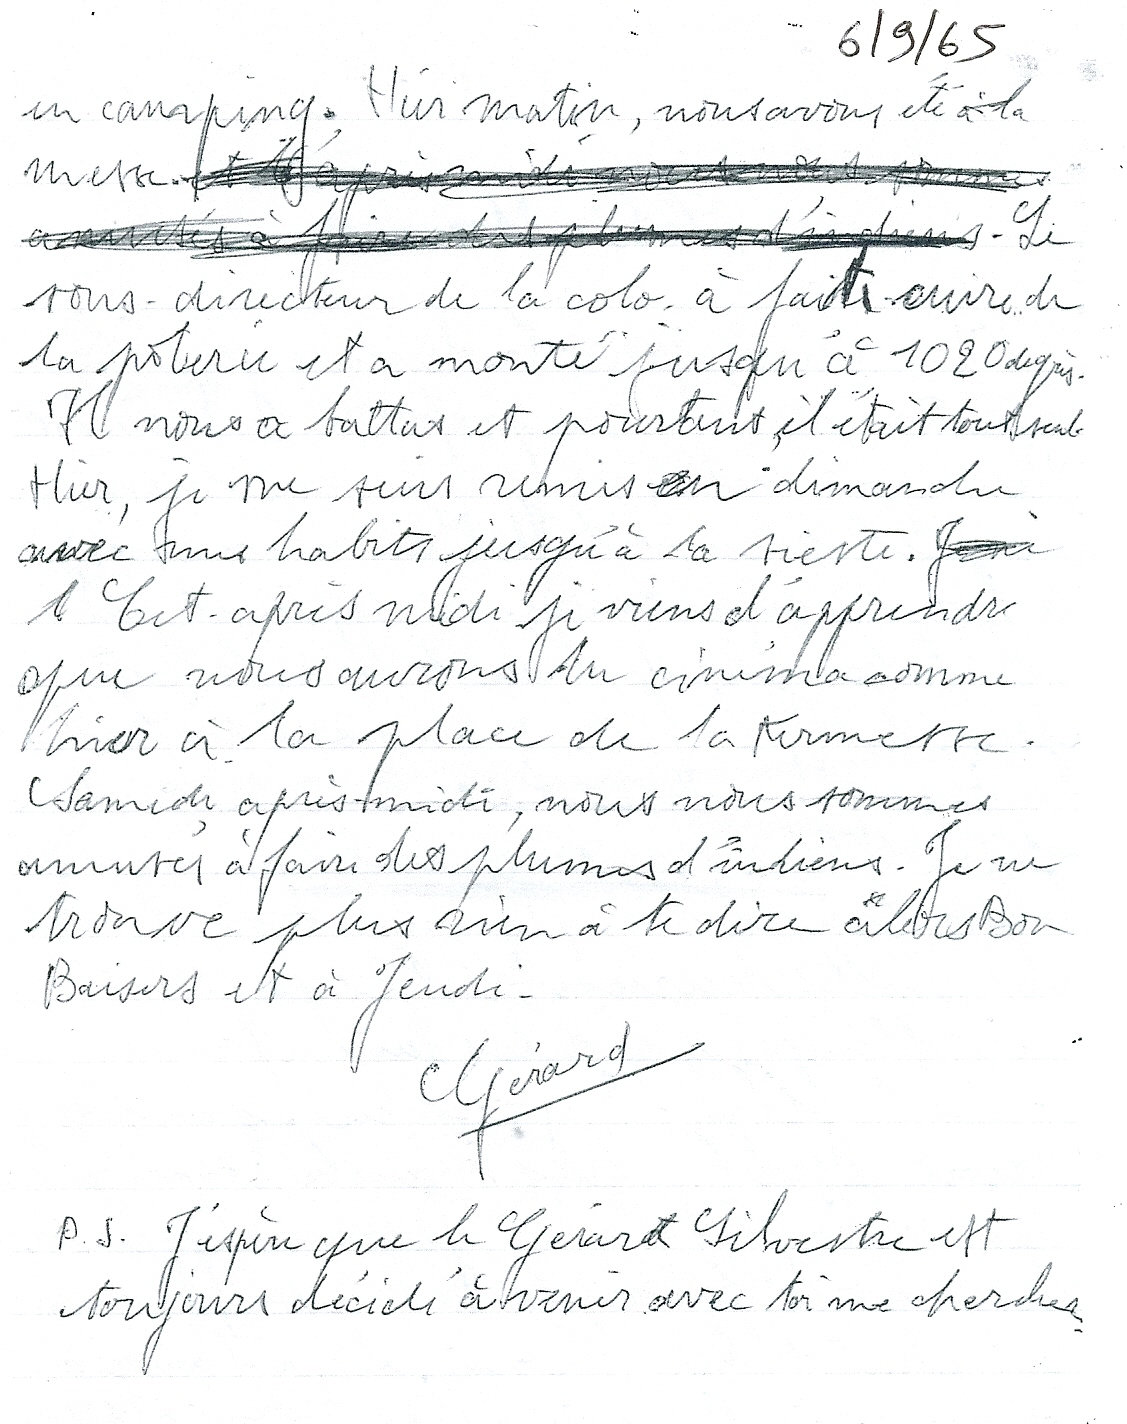 6/9/65
en camping. Hier matin, nous avons été à la
messe. et l'après midi nous nous sommes
amusés à faire des plumes d'indiens. Le
sous-directeur de la colo. à fait cuire de
la pôterie et a monté jusqu'à 1020 degrès.
Il nous a battus et pourtant, il était tout seul.
Hier, je me suis remis en dimanche
avec mes habits jusqu'à la sieste.
Cet après midi je viens d'apprendre
que nous aurons du cinéma comme
hier à la place de la Kermesse.
Samedi après-midi, nous nous sommes
amusés à faire des plumes d'indiens. Je ne
trouve plus rien à te dire alors Bon
Baisers et à Jeudi.
Gérard
P.S. J'espère que le Gérard Silvestre est
toujours décidé à venir avec toi me chercher.